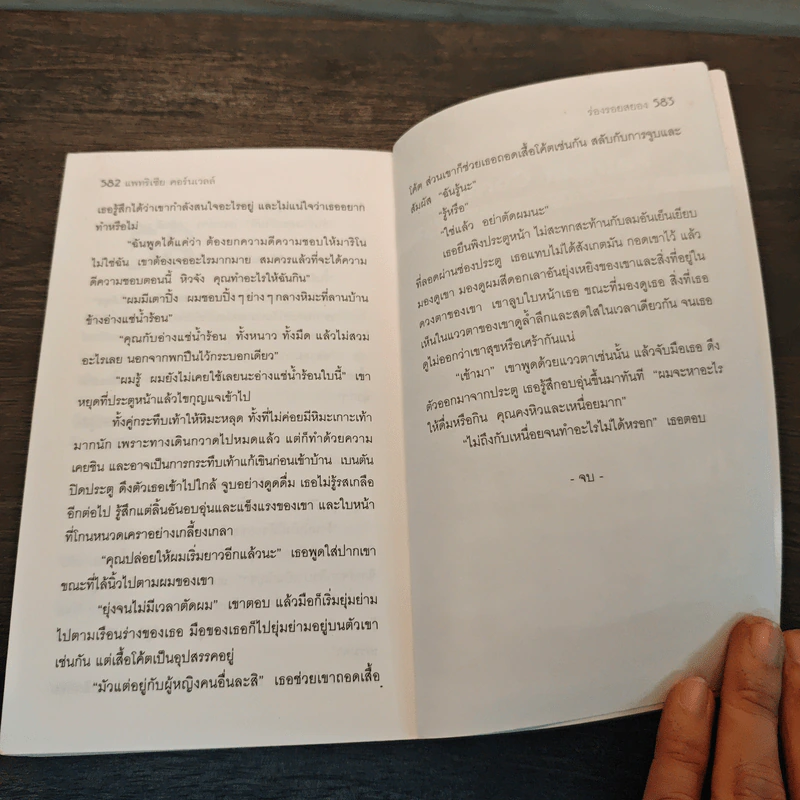 582 แพทริเซีย คอร์นเวลล์
เธอรู้สึกได้ว่าเขากำลังสนใจอะไรอยู่ และไม่แน่ใจว่าเธออยาก
ทำหรือไม่
"ฉันพูดได้แค่ว่า ต้องยกความดีความชอบให้มาริโน
ไม่ใช่ฉัน เขาต้องเจออะไรมากมาย สมควรแล้วที่จะได้ความ
ดีความชอบตอนนี้ หิวจัง คุณทำอะไรให้ฉันกิน"
"ผมมีเตาปิ้ง ผมชอบปิ้งๆ ย่างๆ กลางหิมะที่ลานบ้าน
ข้างอ่างแช่น้ำร้อน"
"คุณกับอ่างแช่น้ำร้อน ทั้งหนาว ทั้งมืด แล้วไม่สวม
อะไรเลย นอกจากพกปืนไว้กระบอกเดียว"
"ผมรู้ ผมยังไม่เคยใช้เลยนะอ่างแช่น้ำร้อนใบนี้" เขา
หยุดที่ประตูหน้าแล้วไขกุญแจเข้าไป
ทั้งคู่กระทืบเท้าให้หิมะหลุด ทั้งที่ไม่ค่อยมีหิมะเกาะเท้า
มากนัก เพราะทางเดินกวาดไปหมดแล้ว แต่ก็ทำด้วยความ
เคยชิน และอาจเป็นการกระทืบเท้าแก้เขินก่อนเข้าบ้าน เบนตัน
ปิดประตู ดึงตัวเธอเข้าไปใกล้ จูบอย่างดูดดื่ม เธอไม่รู้รสเกลือ
อีกต่อไป รู้สึกแต่ลิ้นอันอบอุ่นและแข็งแรงของเขา และใบหน้า
ที่โกนหนวดเคราอย่างเกลี้ยงเกลา
"คุณปล่อยให้ผมเริ่มยาวอีกแล้วนะ" เธอพูดใส่ปากเขา
ขณะที่ไล้นิ้วไปตามผมของเขา
"ยุ่งจนไม่มีเวลาตัดผม" เขาตอบ แล้วมือก็เริ่มยุ่มย่าม
ไปตามเรือนร่างของเธอ มือของเธอก็ไปยุ่มย่ามอยู่บนตัวเขา
เช่นกัน แต่เสื้อโค้ตเป็นอุปสรรคอยู่
"มัวแต่อยู่กับผู้หญิงคนอื่นละสิ" เธอช่วยเขาถอดเสื้อ
ร่องรอยสยอง 583
โค้ต ส่วนเขาก็ช่วยเธอถอดเสื้อโค้ตเช่นกัน สลับกับการจูบและ
สัมผัส "ฉันรู้นะ"
"รู้หรือ"
"ใช่แล้ว อย่าตัดผมนะ"
เธอยืนพิงประตูหน้า ไม่สะทกสะท้านกับลมอันเย็นเยียบ
ที่ลอดผ่านช่องประตู เธอแทบไม่ได้สังเกตมัน กอดเขาไว้ แล้ว
มองดูเขา มองดูผมสีดอกเลาอันยุ่งเหยิงของเขาและสิ่งที่อยู่ใน
ดวงตาของเขา เขาลูบใบหน้าเธอ ขณะที่มองดูเธอ สิ่งที่เธอ
เห็นในแววตาของเขาดูล้ำลึกและสดใสในเวลาเดียวกัน จนเธอ
ดูไม่ออกว่าเขาสุขหรือเศร้ากันแน่
"เข้ามา" เขาพูดด้วยแววตาเช่นนั้น แล้วจับมือเธอ ดึง
ตัวออกมาจากประตู เธอรู้สึกอบอุ่นขึ้นมาทันที "ผมจะหาอะไร
ให้ดื่มหรือกิน คุณคงหิวและเหนื่อยมาก"
"ไม่ถึงกับเหนื่อยจนทำอะไรไม่ได้หรอก" เธอตอบ
- จบ -